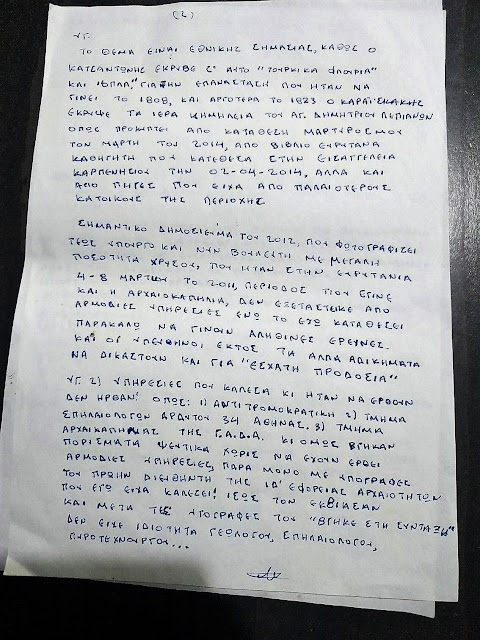 (2)
ΥΓ.
ΤΟ ΘΕΜΑ ΕΙΝΑΙ ΕΘΝΙΚΗΣ ΣΗΜΑΣΙΑΣ, ΚΑΘΩΣ Ο
ΚΑΤΣΑΝΤΩΝΗΣ ΕΚΡΥΒΕ Σ' ΑΥΤΟ "ΤΟΥΡΚΙΚΑ ΦΛΟΥΡΙΑ"
ΚΑΙ ΟΠΛΑ, ΓΙΑ ΤΗΝ ΕΠΑΝΑΣΤΑΣΗ ΠΟΥ ΗΤΑΝ ΝΑ
ΓΙΝΕΙ ΤΟ 1808, ΚΑΙ ΑΡΓΟΤΕΡΑ ΤΟ 1823 Ο ΚΑΡΑΪΣΚΑΚΗΣ
ΕΚΡΥΨΕ ΤΑ ΙΕΡΑ ΚΗΜΗΛΕΙΑ ΤΟΥ ΑΓ. ΔΗΜΗΤΡΙΟΥ ΠΕΠΙΑΝΩΝ
ΟΠΩΣ ΠΡΟΚΥΠΤΕΙ ΑΠΟ ΚΑΤΑΘΕΣΗ ΜΑΡΤΥΡΟΣ ΜΟΥ
ΤΟΝ ΜΑΡΤΗ ΤΟΥ 2014, ΑΠΟ ΒΙΒΛΙΟ ΕΥΡΥΤΑΝΑ
ΚΑΘΗΓΗΤΗ ΠΟΥ ΚΑΤΕΘΕΣΑ ΣΤΗΝ ΕΙΣΑΓΓΕΛΕΙΑ
ΚΑΡΠΕΝΗΣΙΟΥ ΤΗΝ 02-04-2014, ΑΛΛΑ ΚΑΙ
ΑΠΟ ΠΗΓΕΣ ΠΟΥ ΕΙΧΑ ΑΠΟ ΠΑΛΑΙΟΤΕΡΟΥΣ
ΚΑΤΟΙΚΟΥΣ ΤΗΣ ΠΕΡΙΟΧΗΣ
ΣΗΜΑΝΤΙΚΟ ΔΗΜΟΣΙΕΥΜΑ ΤΟΥ 2012, ΠΟΥ ΦΩΤΟΓΡΑΦΙΖΕΙ
ΤΕΩΣ ΥΠΟΥΡΓΟ ΚΑΙ ΝΥΝ ΒΟΥΛΕΥΤΗ ΜΕ ΜΕΓΑΛΗ
ΠΟΣΟΤΗΤΑ ΧΡΥΣΟΥ, ΠΟΥ ΗΤΑΝ ΣΤΗΝ ΕΥΡΥΤΑΝΙΑ
4-8 ΜΑΡΤΙΟΥ ΤΟ 2011, ΠΕΡΙΟΔΟΣ ΠΟΥ ΕΓΙΝΕ
ΚΑΙ Η ΑΡΧΑΙΟΚΑΠΗΛΙΑ, ΔΕΝ ΕΞΕΤΑΣΤΗΚΕ ΑΠΟ
ΑΡΜΟΔΙΕΣ ΥΠΗΡΕΣΙΕΣ ΕΝΩ ΤΟ ΕΧΩ ΚΑΤΑΘΕΣΕΙ
ΠΑΡΑΚΑΛΩ ΝΑ ΓΙΝΟΥΝ ΑΛΗΘΙΝΕΣ ΕΡΕΥΝΕΣ.
ΚΑΙ ΟΙ ΥΠΕΥΘΗΝΟΙ ΕΚΤΟΣ ΤΑ ΑΛΛΑ ΑΔΙΚΗΜΑΤΑ
ΝΑ ΔΙΚΑΣΤΟΥΝ ΚΑΙ ΓΙΑ "ΕΣΧΑΤΗ ΠΡΟΔΟΣΙΑ"
ΥΓ. 2) ΥΠΗΡΕΣΙΕΣ ΠΟΥ ΚΑΛΕΣΑ ΚΙ ΗΤΑΝ ΝΑ ΕΡΘΟΥΝ
ΔΕΝ ΗΡΘΑΝ! ΟΠΩΣ: 1) ΑΝΤΙΤΡΟΜΟΚΡΑΤΙΚΗ 2) ΤΜΗΜΑ
ΣΠΗΛΑΙΟΛΟΓΩΝ ΑΡΔΥΤΟΥ 34 ΑΘΗΝΑΣ. 3) ΤΜΗΜΑ
ΑΡΧΑΙΚΑΠΗΛΙΑΣ ΤΗΣ Γ.Α.Δ.Α. ΚΙ ΟΜΩΣ ΒΓΗΚΑΝ
ΠΟΡΙΣΜΑΤΑ ΨΕΥΤΙΚΑ ΧΩΡΙΣ ΝΑ ΕΧΟΥΝ ΕΡΘΕΙ
ΑΡΜΟΔΙΕΣ ΥΠΗΡΕΣΙΕΣ, ΠΑΡΑ ΜΟΝΟ ΜΕ ΥΠΟΓΡΑΦΕΣ
ΤΟΥ ΠΡΩΗΝ ΔΙΕΥΘΗΝΤΗ ΤΗΣ ΙΔ' ΕΦΟΡΕΙΑΣ ΑΡΧΑΙΟΤΗΤΩΝ
ΠΟΥ ΕΓΩ ΕΙΧΑ ΚΑΛΕΣΕΙ! ΙΣΩΣ ΤΟΝ ΕΚΒΙΑΣΑΝ
ΚΑΙ ΜΕΤΑ ΤΙΣ ΥΠΟΓΡΑΦΕΣ ΤΟΥ "ΒΓΗΚΕ ΣΤΗ ΣΥΝΤΑΞΗ"
ΔΕΝ ΕΙΧΕ ΙΔΙΟΤΗΤΑ ΓΕΩΛΟΓΟΥ, ΣΠΗΛΑΙΟΛΟΓΟΥ,
ΠΥΡΟΤΕΧΝΟΥΡΓΟΥ...